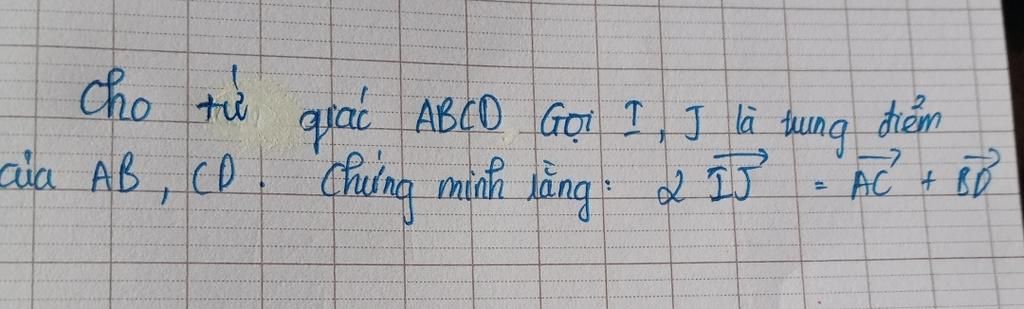 Cho tứ giác ABCD Gọi I, J là trung điểm
của AB, CD. Chứng minh rằng: 2 \overrightarrow{IJ} = \overrightarrow{AC} + \overrightarrow{BD}